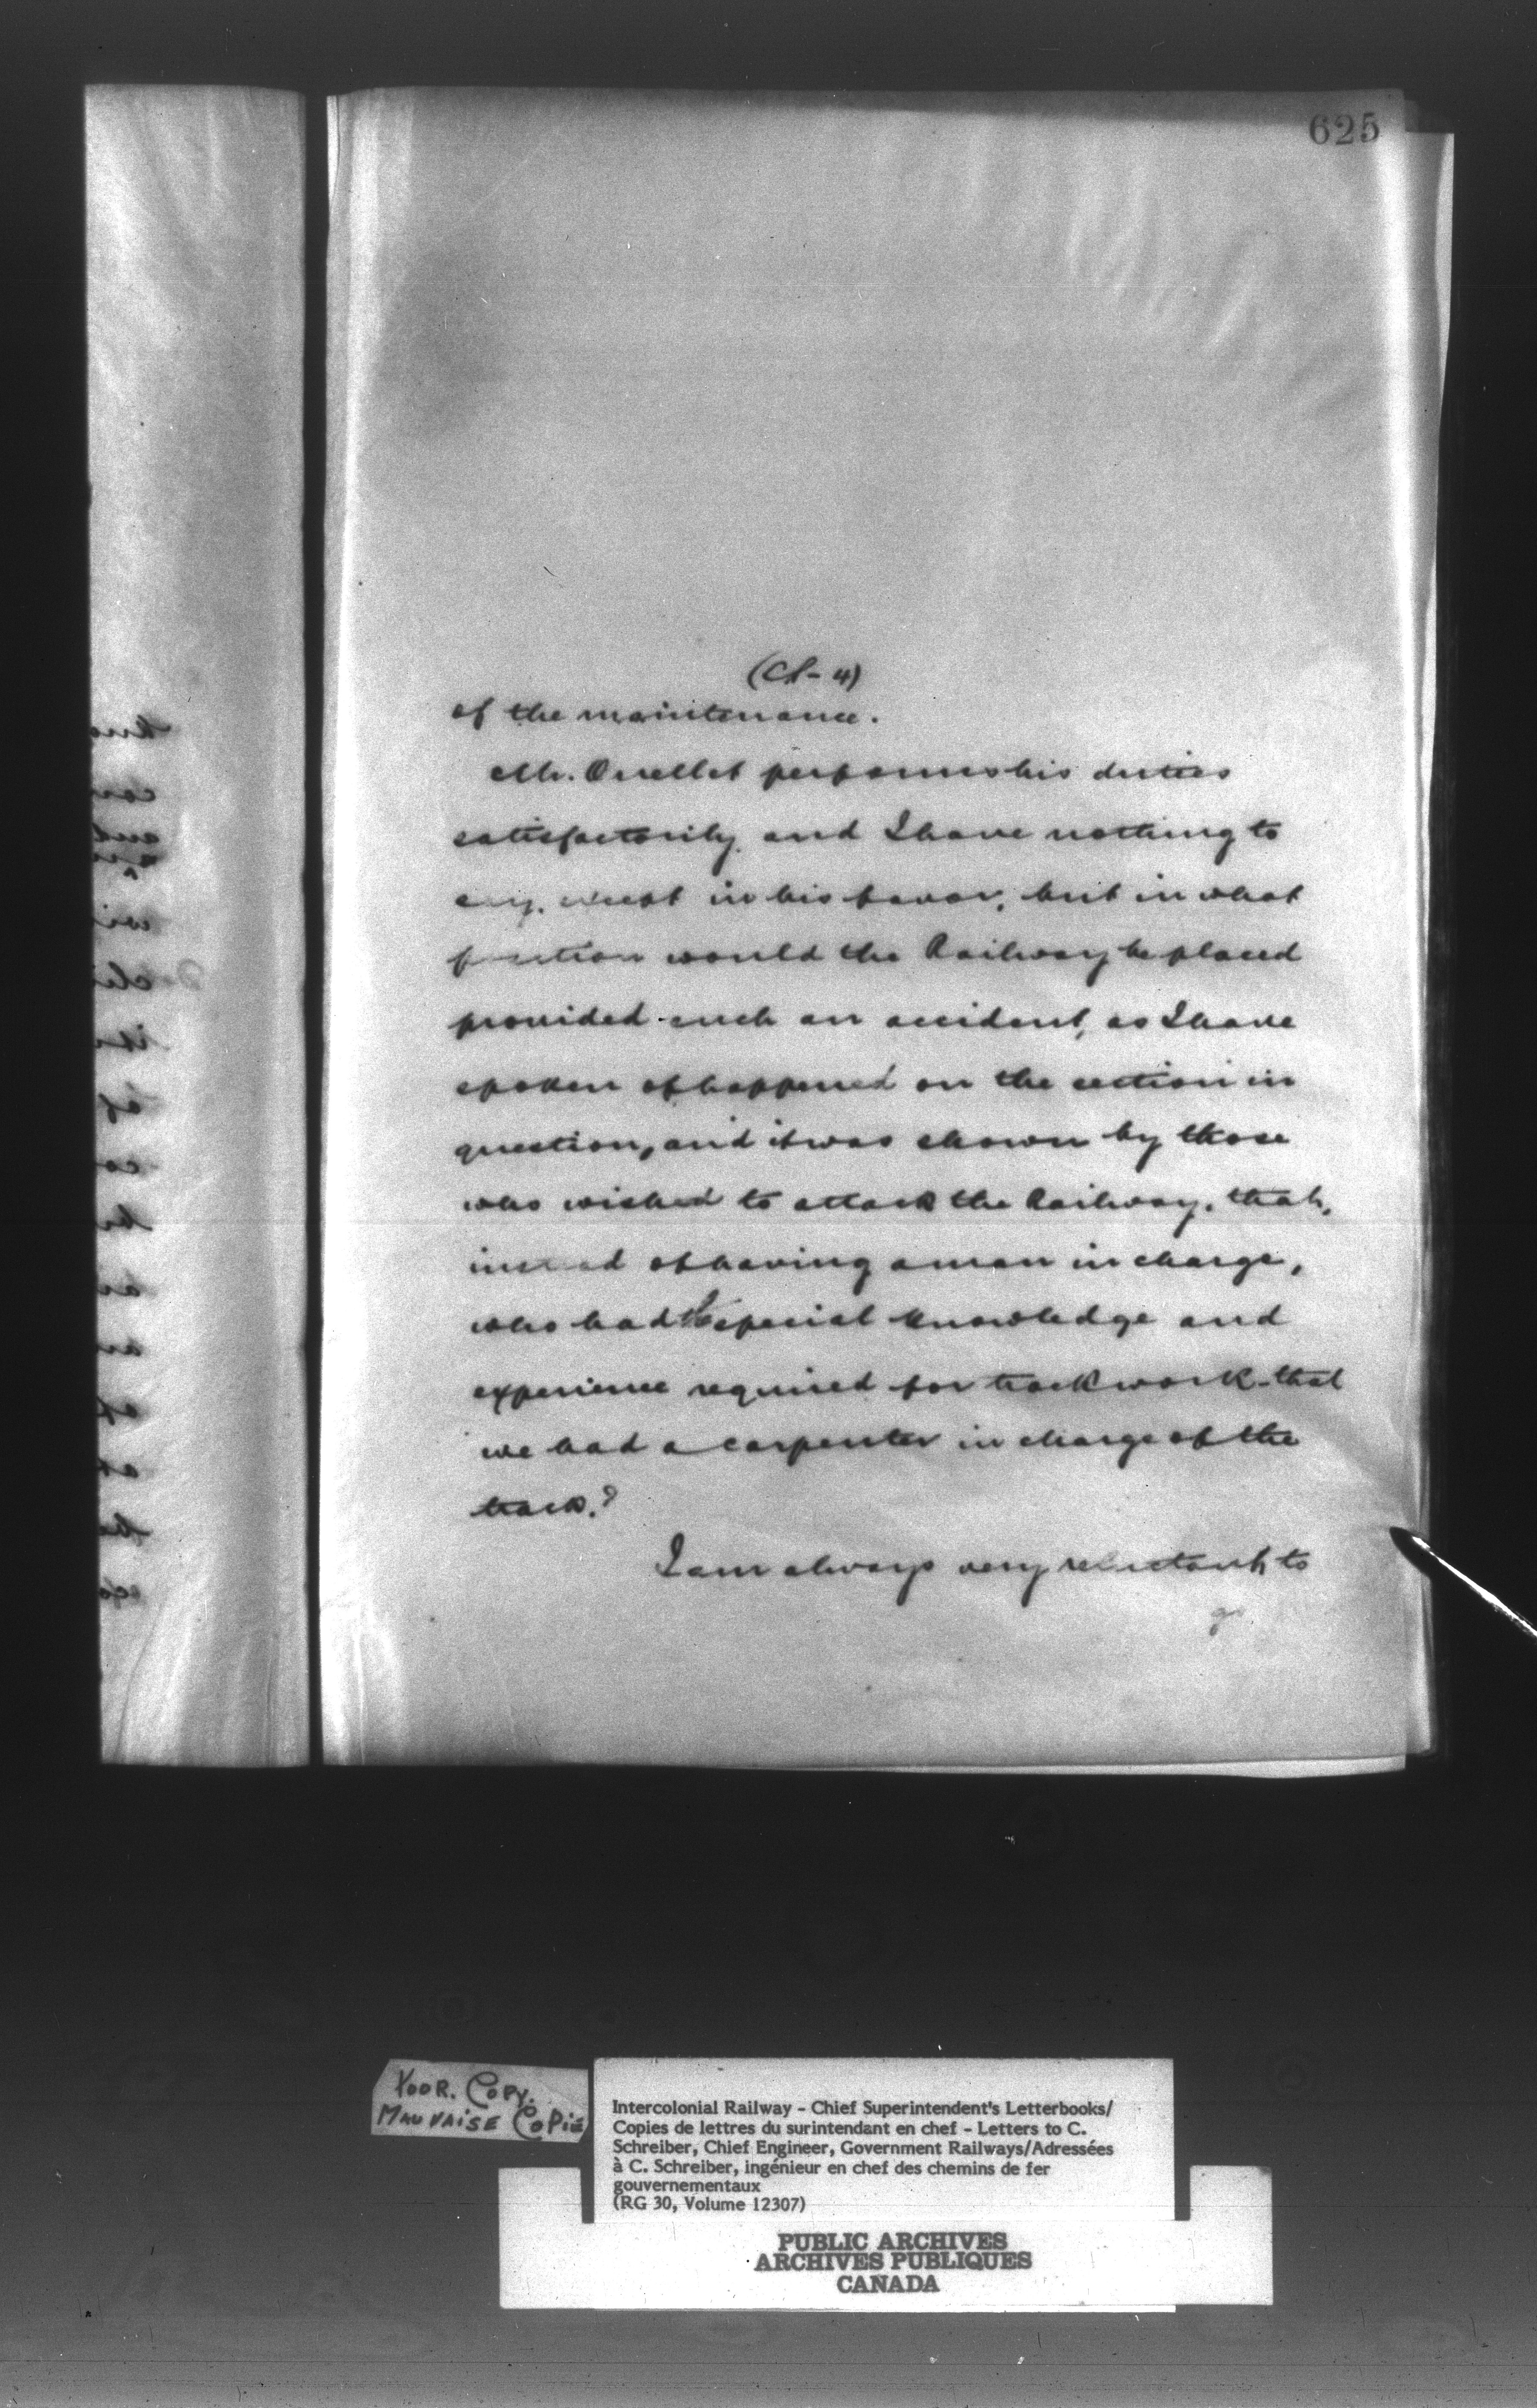 625
of the maintenance.
Mr. Ouellet performs his duties
satisfactorily, and I have nothing to
say, except in his favor, but in what
position would the Railway be placed
provided such an accident, as I have
spoken of happened on the section in
question, and it was shown by those
who wished to attack the Railway, that,
instead of having a man in charge,
who had the special knowledge and
experience required for track work - that
we had a carpenter in charge of the
track.?
I am always very reluctant, to
Poor. Copy.
Mauvaise Copie
Intercolonial Railway - Chief Superintendent's Letterbooks/
Copies de lettres du surintendant en chef - Letters to C.
Schreiber, Chief Engineer, Government Railways/Adressées
à C. Schreiber, ingénieur en chef des chemins de fer
gouvernementaux
(RG 30, Volume 12307)
PUBLIC ARCHIVES
ARCHIVES PUBLIQUES
CANADA